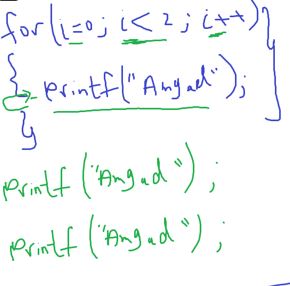 for(i=0; i<2; i++)
{
printf("Angad");
}
printf("Angad");
printf("Angad");